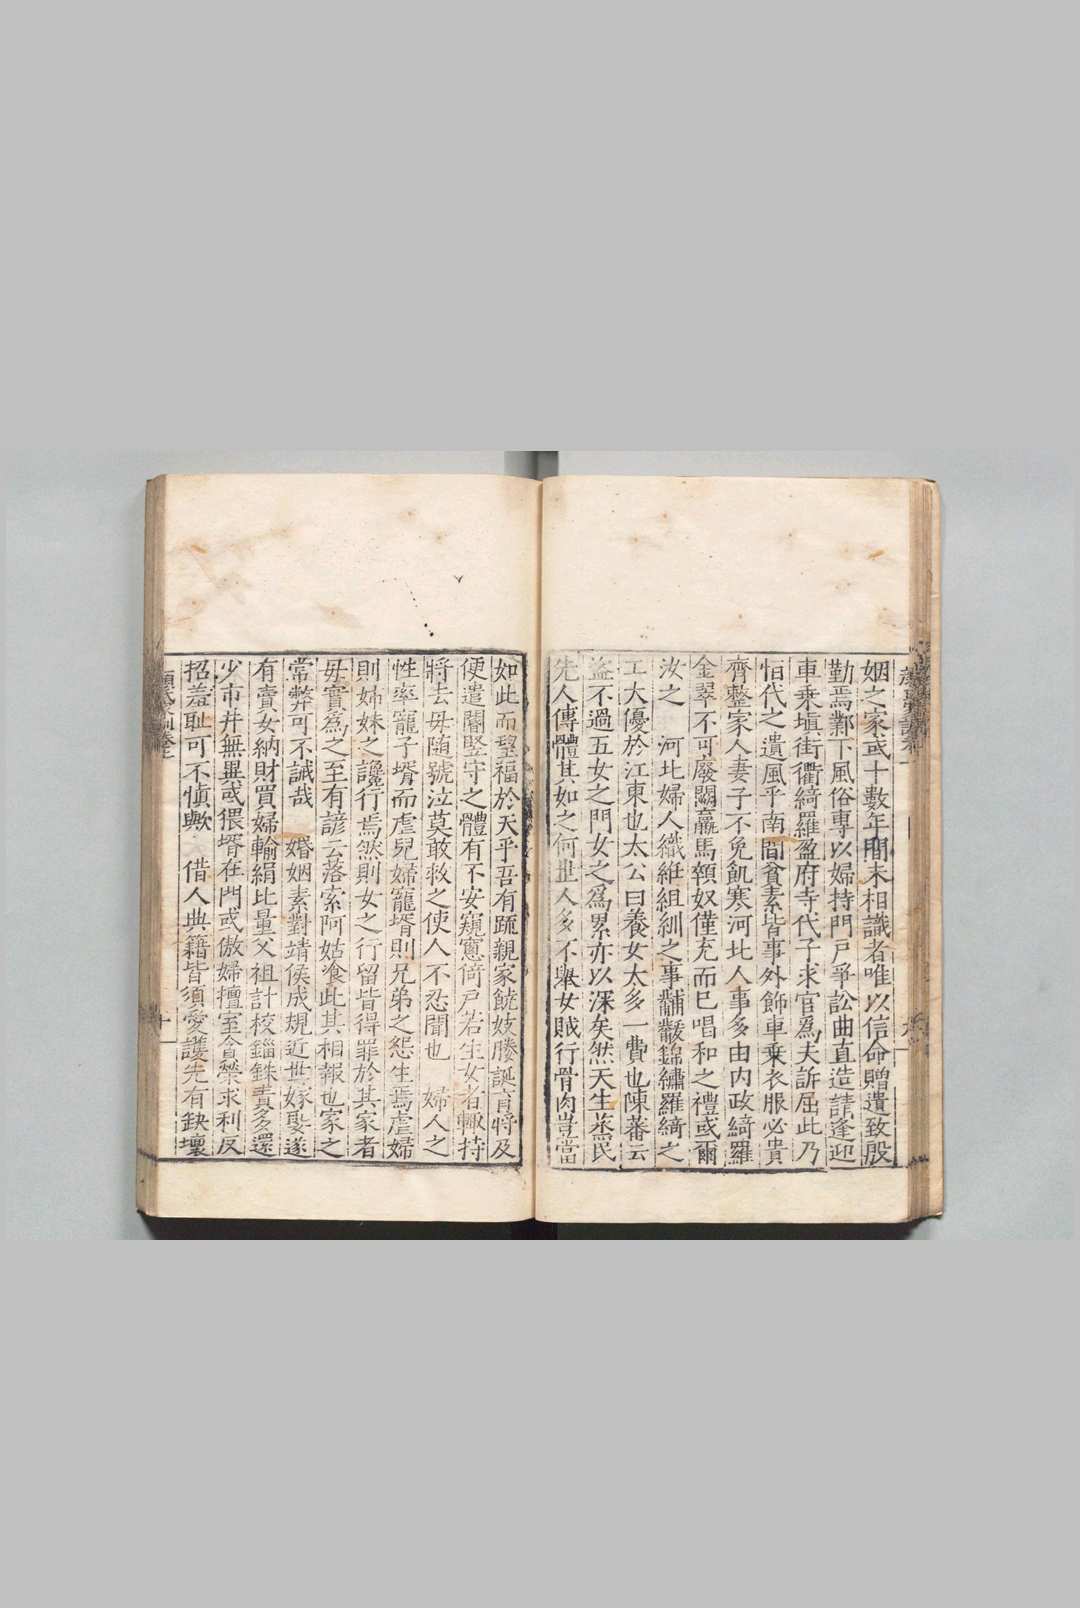 姻之家或十數年閒未相識者唯以信命贈遺致殷
勤焉鄴下風俗專以婦持門戶爭訟曲直造請逢迎
車乗塡街衢綺羅盈府寺代子求官爲夫訴屈此乃
恒代之遺風乎南閒貧素皆事外飾車乗衣服必貴
齊整家人妻子不免飢寒河北人事多由內政綺羅
金翠不可廢闕羸馬顇奴僅充而已唱和之禮或爾
汝之　河北婦人織紝組紃之事黼黻錦繡羅綺之
工大優於江東也太公曰養女太多一費也陳蕃云
盜不過五女之門女之爲累亦以深矣然天生蒸民
先人傳體其如之何世人多不舉女賊行骨肉豈當
如此而望福於天乎吾有疏親家饒妓媵誕育將及
便遣閽竪守之體有不安窺窻倚戶若生女者輙持
將去母随號泣莫敢救之使人不忍聞也　婦人之
性率寵子壻而虐兒婦寵壻則兄弟之怨生焉虐婦
則姊妹之讒行焉然則女之行留皆得罪於其家者
母實爲之至有諺云落索阿姑飡此其相報也家之
常弊可不誡哉　婚姻素對靖侯成規近世嫁娶遂
有賣女納財買婦輸絹比量父祖計校錙銖責多還
少市井無異或猥壻在門或傲婦擅室貪榮求利反
招羞耻可不慎歟　借人典籍皆須愛護先有缺壞
顏氏家訓卷上
十